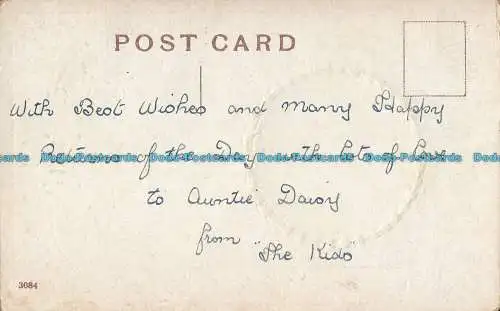 POST CARD
With Best Wishes and Many Happy
Returns of the Day with lots of love
Dodo-Postcards Dodo-Postcards Dodo-Postcards Dodo-Postcards Dodo-Postcards
to Auntie Daisy
from "The Kids"
3084